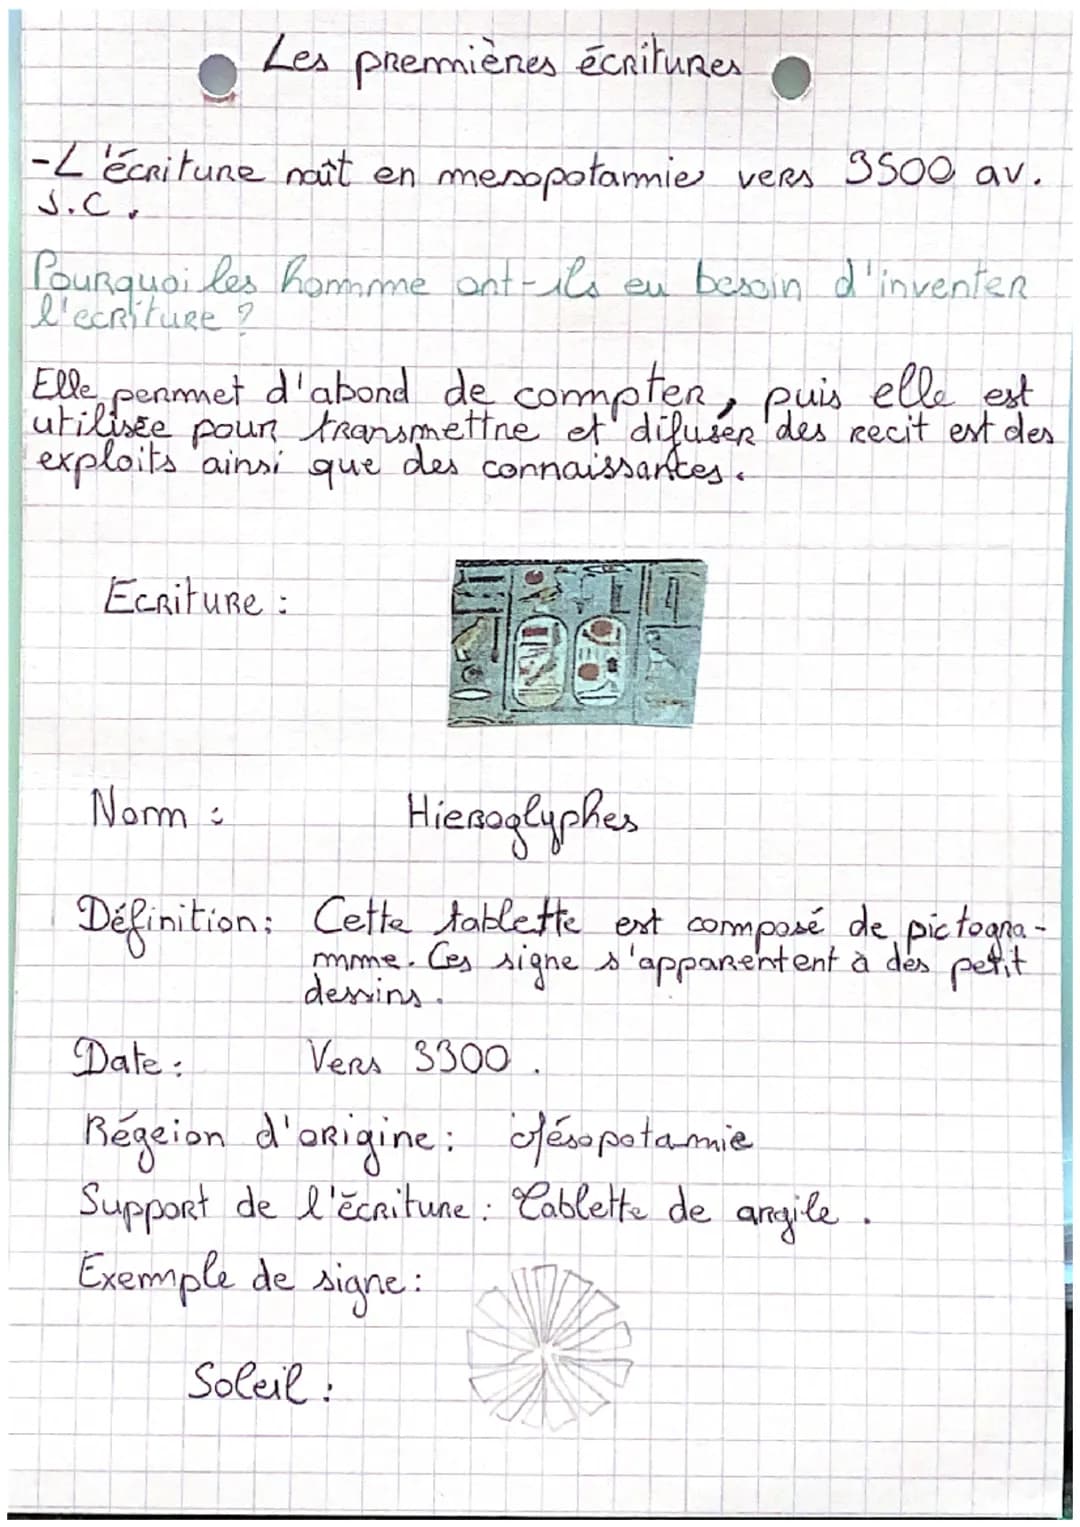 Les premières écritures
-L'écriture naît en mesopotamie vers 3500 av.
J.C.
Pourquoi les homme ont-ils eu besoin d'inventer
l'ecriture ?
Elle permet d'abord de compter, puis elle est
utilisée pour transmettre et difuser des recit est des
exploits ainsi que des connaissances.
Ecriture :
Nom : Hieroglyphes
Définition : Cette tablette est composé de pictogra-
mme. Ces signe s'apparentent à des petit
dessins.
Date : Vers 3300.
Régeion d'origine : Mésopotamie
Support de l'écriture : Tablette de argile.
Exemple de signe :
Soleil :